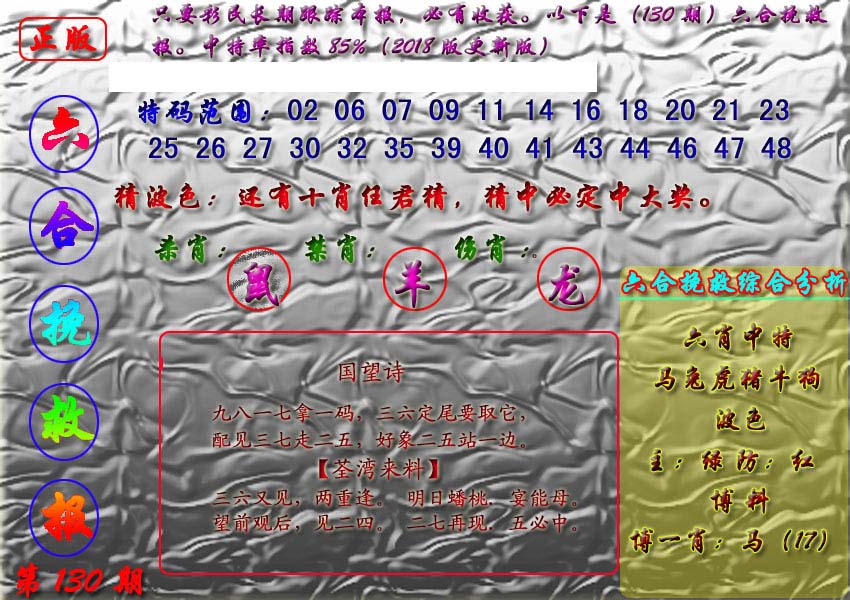 正版
只要彩民长期跟踪本报，必有收获。以下是（130期）六合挽救
报。中特率指数85%（2018版更新版）
六合挽救报
第130期
特码范围：02 06 07 09 11 14 16 18 20 21 23
25 26 27 30 32 35 39 40 41 43 44 46 47 48
猜波色：还有十肖任君猜，猜中必定中大奖。
杀肖：鼠 禁肖：羊 伤肖：。龙
国望诗
九八一七拿一码，三六定尾要取它，
配见三七走二五，好象二五站一边。
【荃湾来料】
三六又见，两重逢。 明日蟠桃．宴能母。
望前观后，见二四。 二七再现．五必中。
六合挽救综合分析
六肖中特
马兔虎猪牛狗
波色
主：绿防：红
博料
博一肖：马（17）